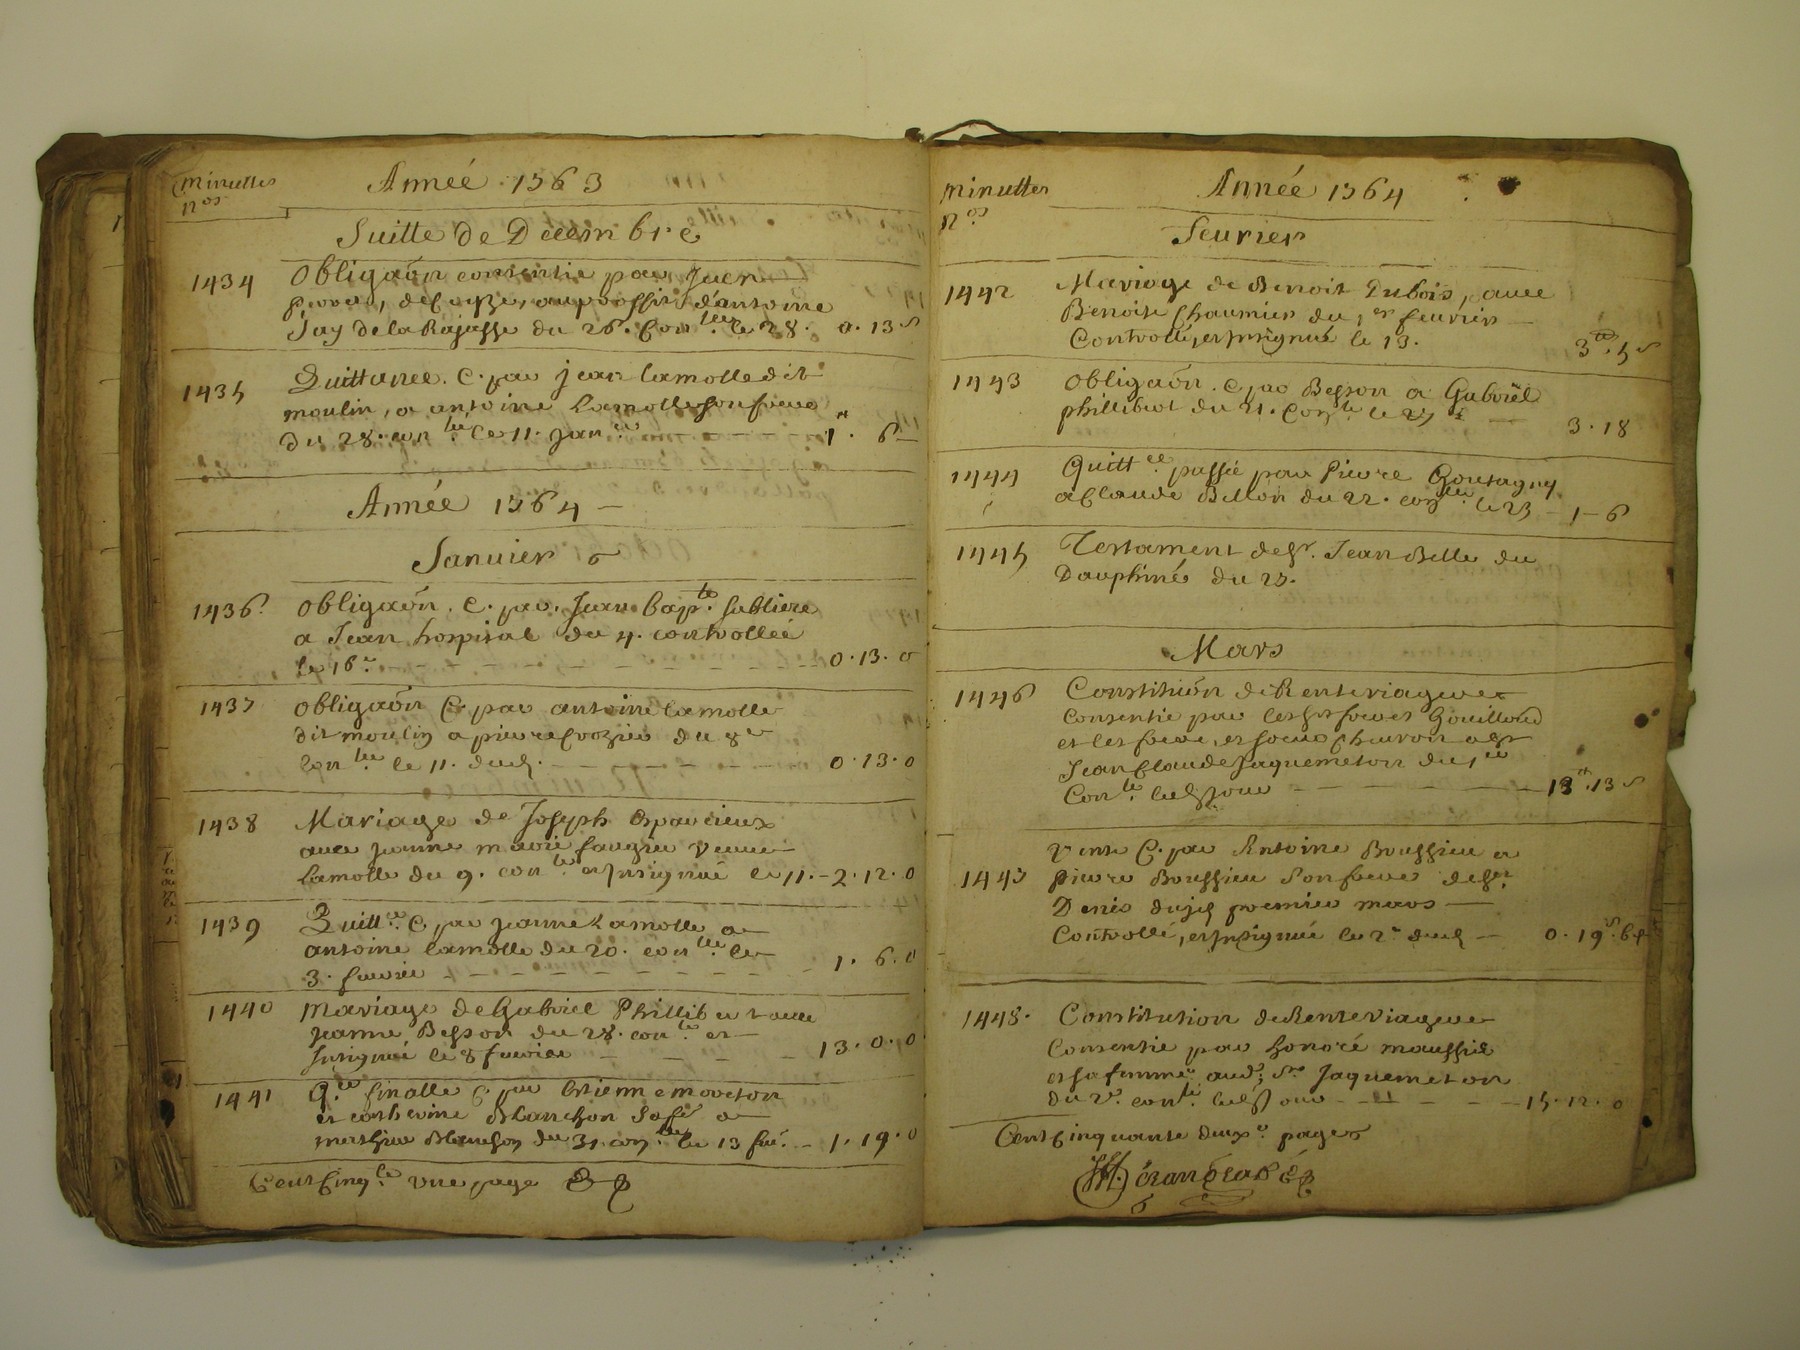 Minuttes
nos
Année 1763
Suitte de Decembre
1434
obligaôn consentie par Jean
aupproffit d'antoine
Jay de la Rajasse du 26. Con.lée le 28. 0. 13 s
1435
Quittance. C. par jean lamolle dit
moulin, a antoine Lamolle son frere
du 28. con.lée le 11. jan.er 1.tt 6
Année 1764
Janvier
1436.
obligaôn. C. par. Jean bap.te Sabliere
a Jean hospital du 4. controllée
le 16.e 0. 13. 0
1437
obligaôn C. par antoine lamolle
dit moulin a pierre du 8e
Con.lée le 11. dud. 0. 13. 0
1438
Mariage de Joseph
avec jeanne marie veuve
lamolle du 9. con.lé et Insignué le 11. - 2. 12. 0
1439
Quitt.ce C. par jeanne Lamolle a
antoine lamolle du 20. con.lée le
3. fevrier 1. 6. 0
1440
Mariage de Gabriel Phillibert avec
jeanne Besson du 28. con.lé et
Insignué le 8 fevrier 13. 0. 0
1441
Q.ce finalle C. par Estienne moreton
et catherine Blanchon sa fe a
mathieu Blanchon du 31. con.lée le 13 fév. - 1. 19. 0
Cent Cinq.te une page
Minuttes
n.os
Année 1764
Feuvrier
1442
Mariage de Benoit Dubois, avec
Benoite Chaumier du 1.er feuvrier
Controllé, et Insignué le 13. 3.tt. 5 s
1443
obligaôn. C. par Besson a Gabriël
phillibert du 21. Con.lée le 3. 18
1444
Quitt.ce passée par Pierre Goutagny
a Claude Billon du 22. con.lée le 23 - 1 - 6
1445
Testament de Sr. Jean Belle du
Dauphiné du 25.
Mars
1446
Constitution de Rente viagere
consentie par les frs freres Gouilloud
et les frere, et soeur Chavron a Sr
Jean Claude Jaquemeton du 1.er
Con.lée led jour 13.tt. 13 s
1447
Vente C. par Antoine Boussieu a
pierre Boussieu son frere de St
Denis dujd premier mars
Controllé, et Insignué le 2.e dud - 0. 19 s. 6 d
1448.
Constitution de Rente viagere
Consentie par honoré maussier
et sa femme, aud; Sr. Jaquemeton
du 2.e con.lée led jour 15. 12. 0
Cent Cinquante deux.e page